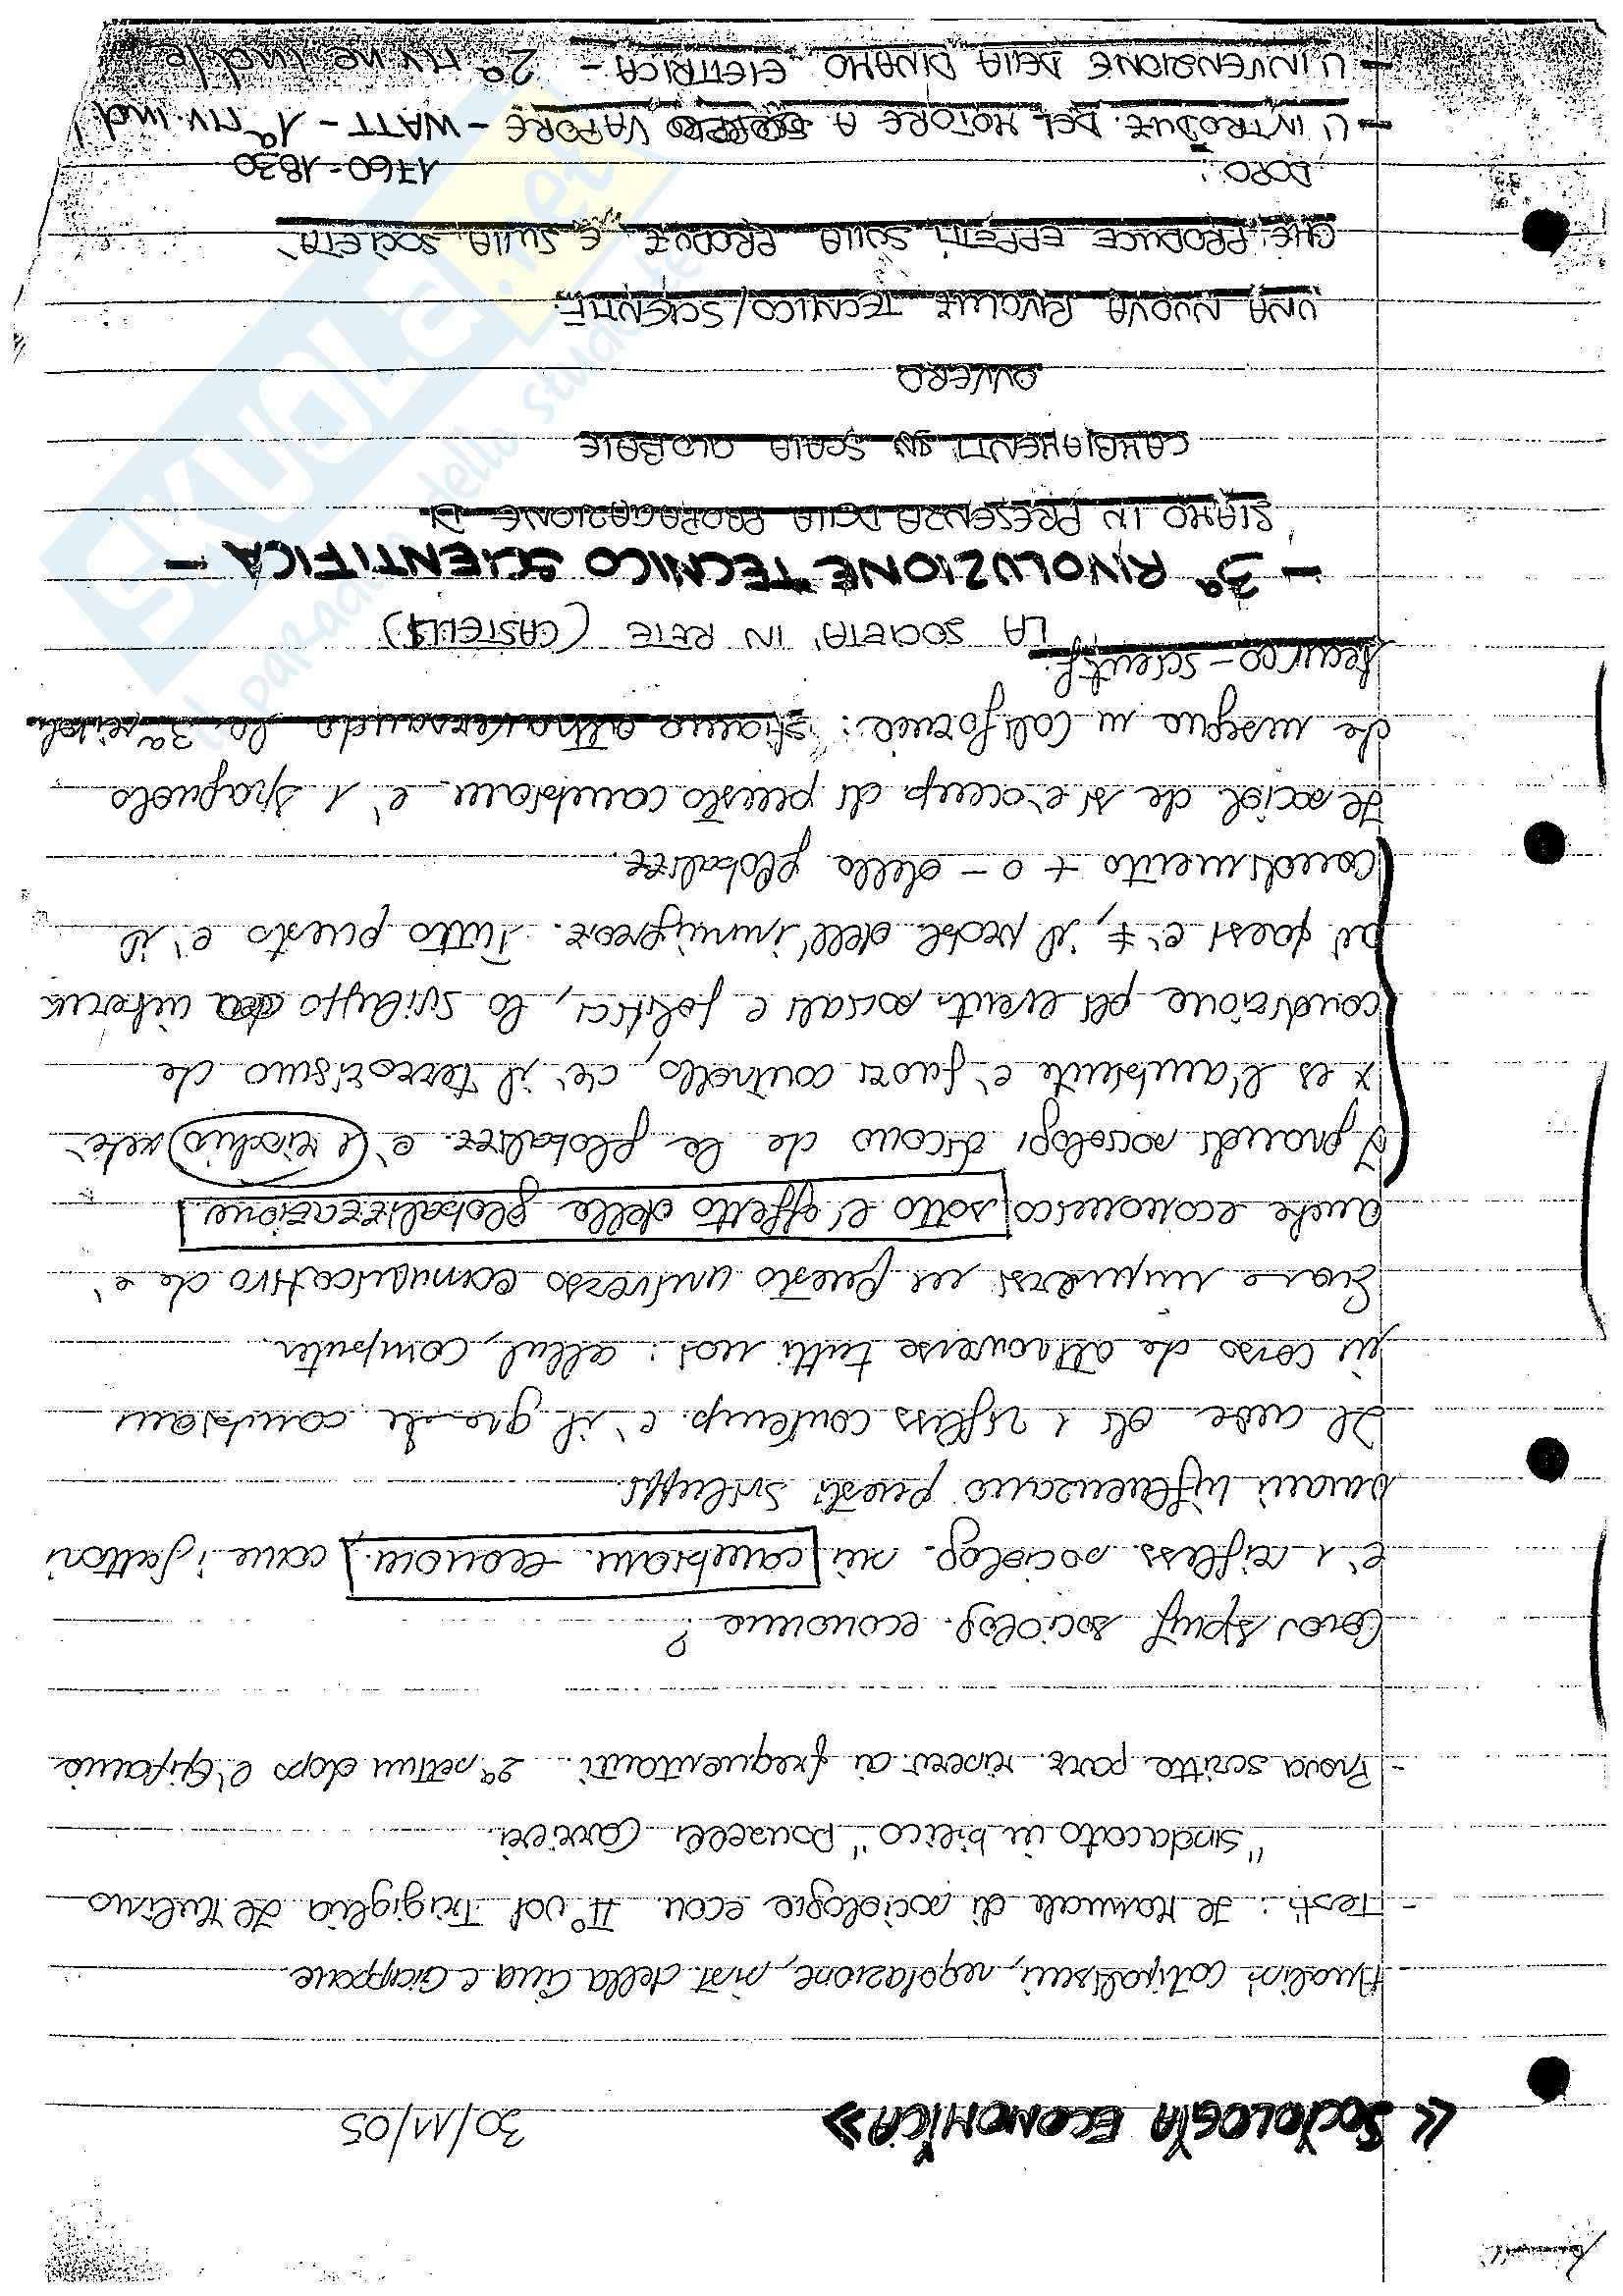 « SOCIOLOGIA ECONOMICA » 30/11/05
Analisi capitalismi, regolazione, sist. della Cina e Giappone
- Testi: Il Manuale di sociologia econ II° vol Trigiglia Il Mulino
"Sindacato in bilico" Ponzelli Carrieri
- Prova scritta parz. riserv. ai frequentanti. 2ª settim dopo l'Epifania
Cosa signif sociolog. economia?
è 1 rifless sociolog. sui cambiam. econom. come i fattori
umani influenzano questi sviluppi.
Il cuore di 1 rifless contemp. è il grande cambiam
in corso che attraversa tutti noi: cellul, computer.
e immersi in questo universo comunicativo che è
anche economico sotto l'effetto della globalizzazione.
I grandi sociologi dicono che la globalizz. è a rischio xchè
x es l'ambiente è fuori controllo, c'è il terrorismo che
condizione gli eventi sociali e politici, lo sviluppo
dei paesi è ≠, il probl dell'immigraz. Tutto questo è il
condimento + o - della globalizz.
Il sociol che si è occup di questo cambiam è 1 spagnolo
che insegna in California: stiamo attraversando la 3ª rivol.
tecnico-scientif.
LA SOCIETA' IN RETE (CASTELLS)
- 3ª RIVOLUZIONE TECNICO SCIENTIFICA -
SIAMO IN PRESENZA DELLA PROPAGAZIONE DI
CAMBIAMENTI SU SCALA GLOBALE
OVVERO
UNA NUOVA RIVOLUZ TECNICO/SCIENTIF.
CHE PRODUCE EFFETTI SULLA PRODUZ. E SULLA SOCIETA'
DOPO: 1760-1830
- L'INTRODUZ. DEL MOTORE A VAPORE - WATT - 1ª riv. ind.
- L'INVENZIONE DELLA DINAMO ELETTRICA - 2ª riv.ne ind.le
SKUOLA.net
il paradiso dello studente